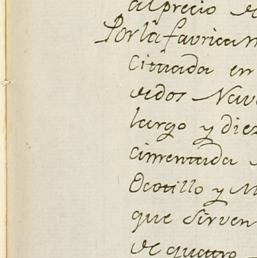 al precio de
Por la fabrica
Citiada en
de dos Nav
largo y diez
cimentada
Ocotillo y M
que Sirven
de quatro